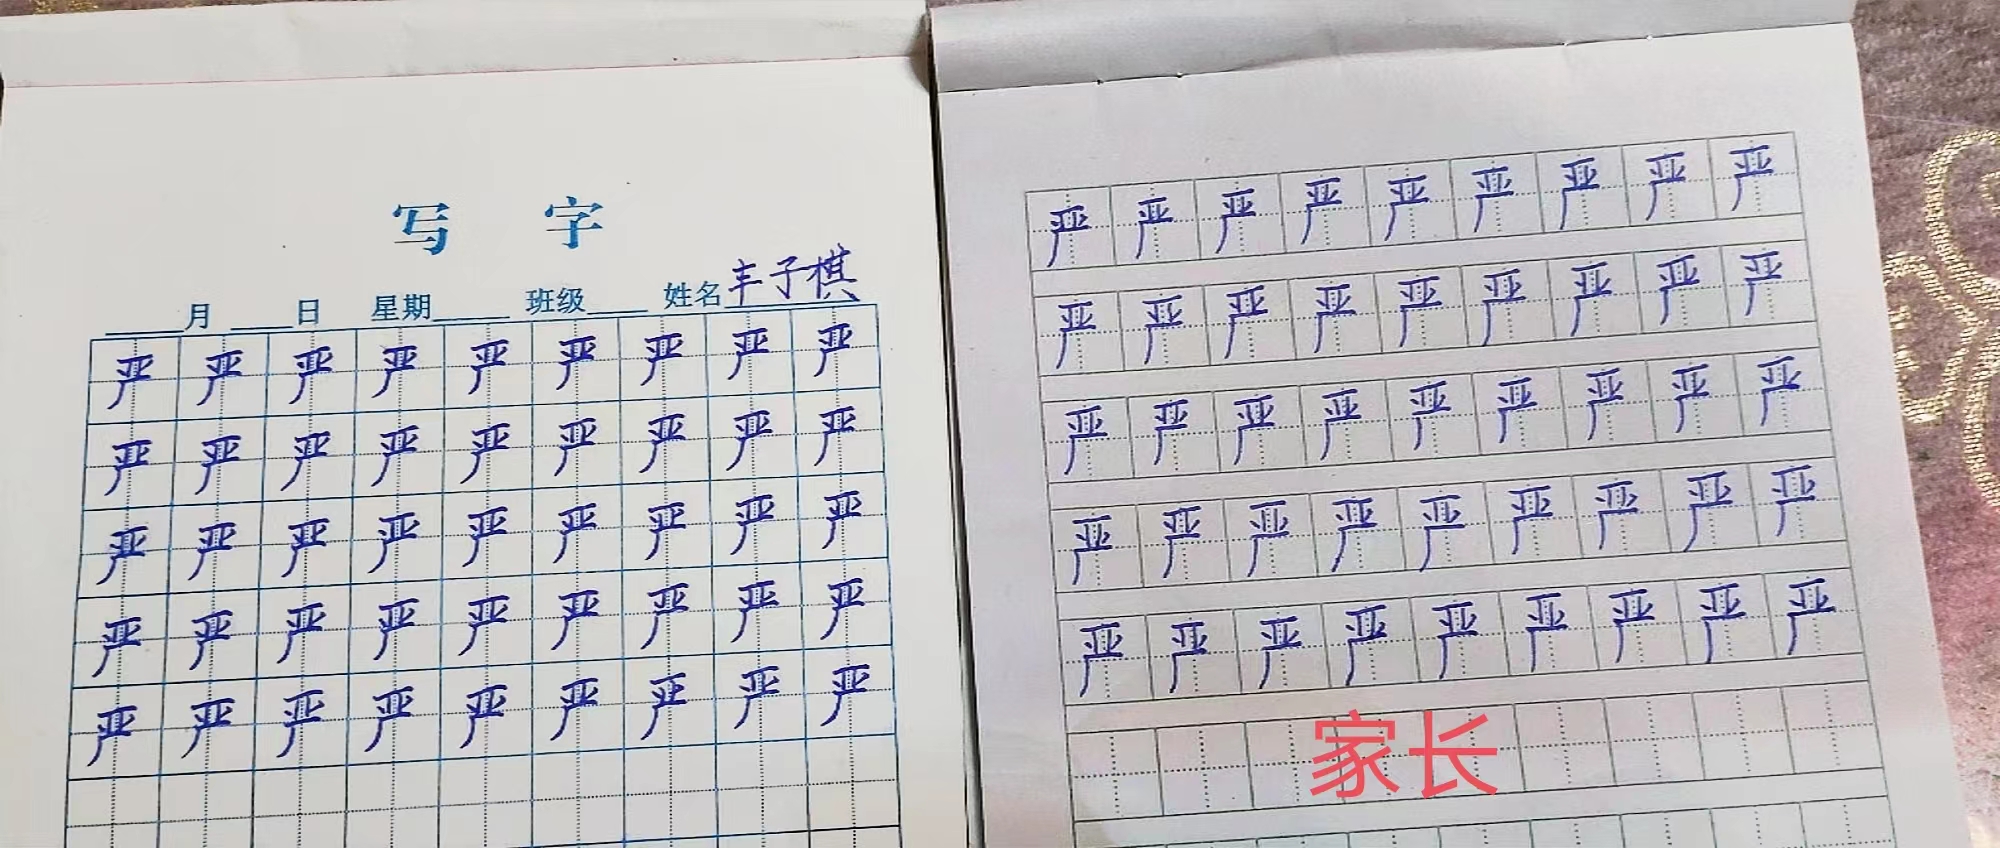 写 字
月 日 星期 班级 姓名丰子棋
严 严 严 严 严 严 严 严 严
严 严 严 严 严 严 严 严 严
严 严 严 严 严 严 严 严 严
严 严 严 严 严 严 严 严 严
严 严 严 严 严 严 严 严 严
严 严 严 严 严 严 严 严 严
严 严 严 严 严 严 严 严 严
严 严 严 严 严 严 严 严 严
严 严 严 严 严 严 严 严 严
严 严 严 严 严 严 严 严 严
家长